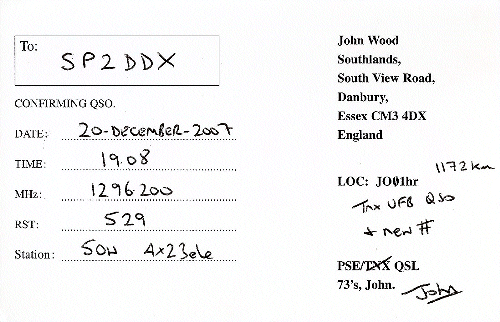 To:
SP2DDX
CONFIRMING QSO.
DATE: 20-DECEMBER-2007
TIME: 19.08
MHz: 1296.200
RST: 529
Station: 50W 4x23ele
John Wood
Southlands,
South View Road,
Danbury,
Essex CM3 4DX
England
1172 km
LOC: JO01hr
Tnx UFB QSO
+ new #
PSE/TNX QSL
73's, John.
John